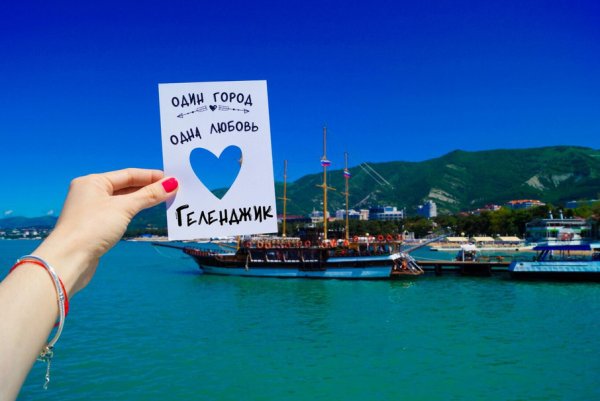 ОДИН ГОРОД
ОДНА ЛЮБОВЬ
ГЕЛЕНДЖИК